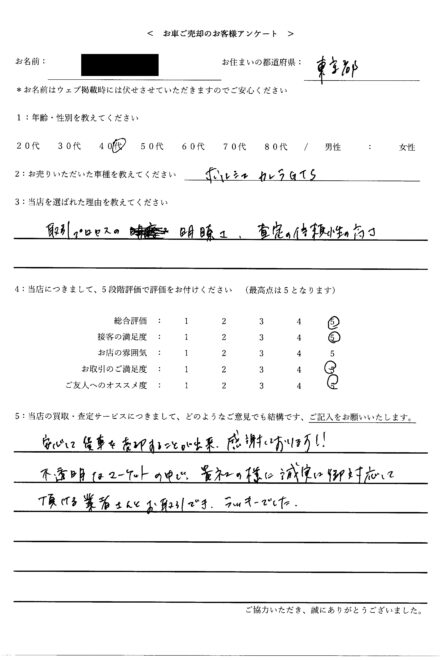 < お車ご売却のお客様アンケート >
お名前： お住まいの都道府県： 東京都
＊お名前はウェブ掲載時には伏せさせていただきますのでご安心ください
1：年齢・性別を教えてください
20代 30代 40代 50代 60代 70代 80代 / 男性 ： 女性
2：お売りいただいた車種を教えてください ポルシェ カレラGTS
3：当店を選ばれた理由を教えてください
取引プロセスの 明瞭さ、査定の信頼性の高さ
4：当店につきまして、5段階評価で評価をお付けください （最高点は5となります）
総合評価 ： 1 2 3 4 5
接客の満足度 ： 1 2 3 4 5
お店の雰囲気 ： 1 2 3 4 5
お取引のご満足度 ： 1 2 3 4 5
ご友人へのオススメ度 ： 1 2 3 4 5
5：当店の買取・査定サービスにつきまして、どのようなご意見でも結構です、ご記入をお願いいたします。
安心して 愛車を売却することが出来、感謝しております!!
不透明なマーケットの中で、貴社の様に誠実に御対応して
頂ける業者さんとお取引でき、ラッキーでした.
ご協力いただき、誠にありがとうございました。